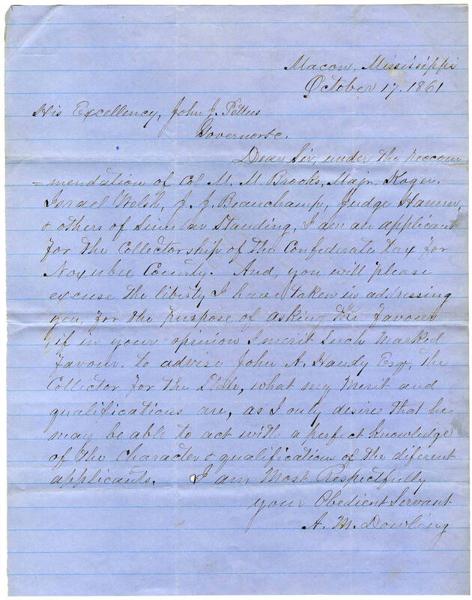 Macon, Mississippi
October 17, 1861
His Excellency, John J. Pettus
Governor &c.
Dear Sir, under the Recom
=mendation of Col M. M. Brooks, Majr. Koger.
Israel Welsh, J. J. Beauchamp, Judge
& others of Similar Standing, I am an applicant
for the Collectorship of the Confederate tax for
Noxubee County. And, you will please
excuse the liberty I have taken in addressing
you, for the purpose of asking the favour
if in your opinion I merit Such Marked
Favour. to advise John A. Handy Esqr, the
Collector for the State, what my Merit and
qualifications are, as I only desire that he
may be able to act with a perfect knowledge
of the Character & qualifications of the diferent
applicants. I am Most Respectfully
your Obedient Servant
A. M. Dowling